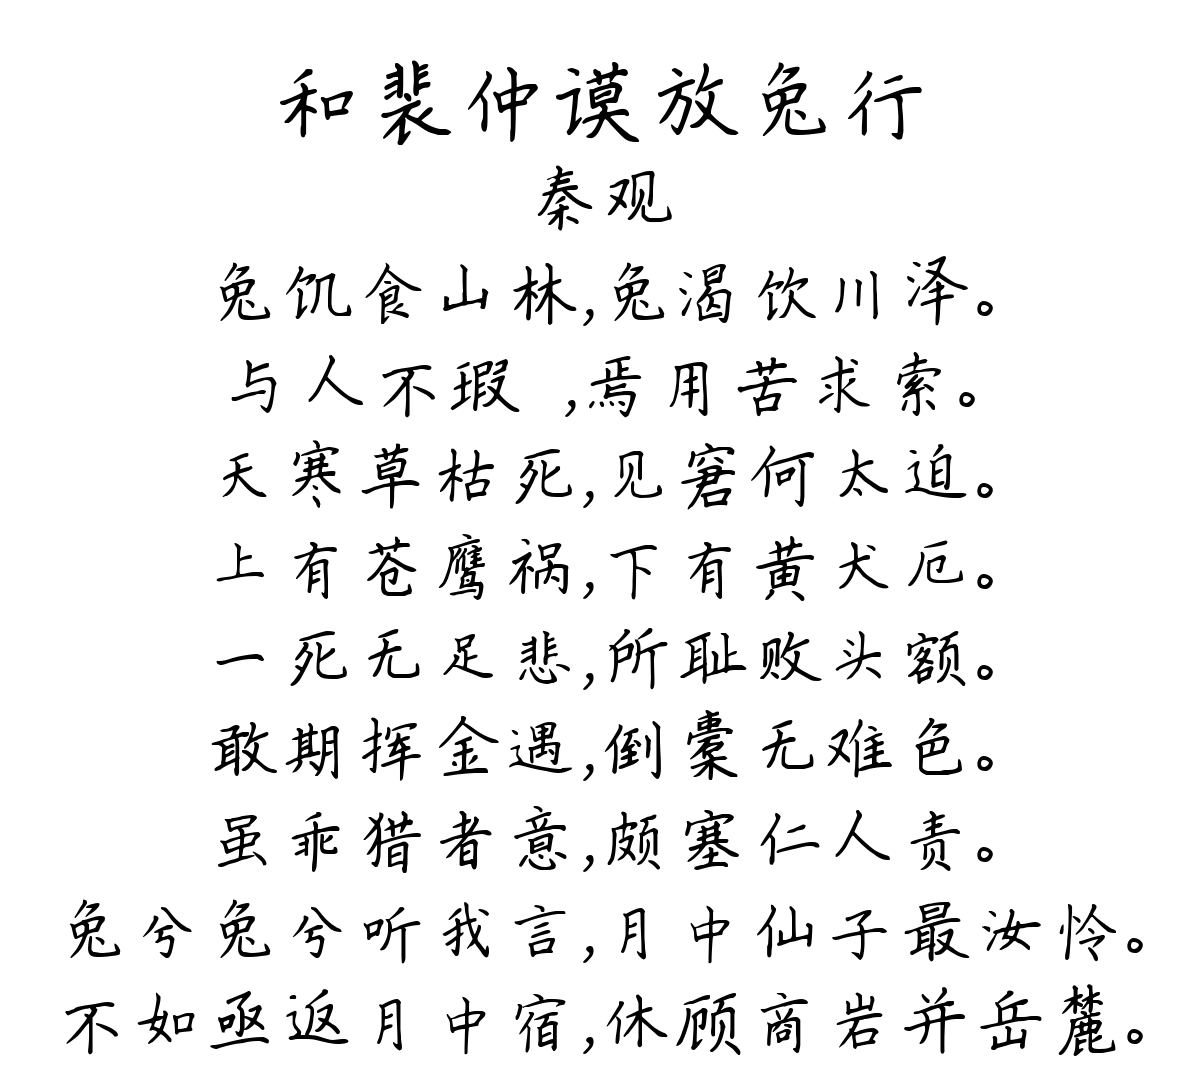 和裴仲谟放兔行
秦观
兔饥食山林,兔渴饮川泽。
与人不瑕 ,焉用苦求索。
天寒草枯死,见窘何太迫。
上有苍鹰祸,下有黄犬厄。
一死无足悲,所耻败头额。
敢期挥金遇,倒橐无难色。
虽乖猎者意,颇塞仁人责。
兔兮兔兮听我言,月中仙子最汝怜。
不如亟返月中宿,休顾商岩并岳麓。